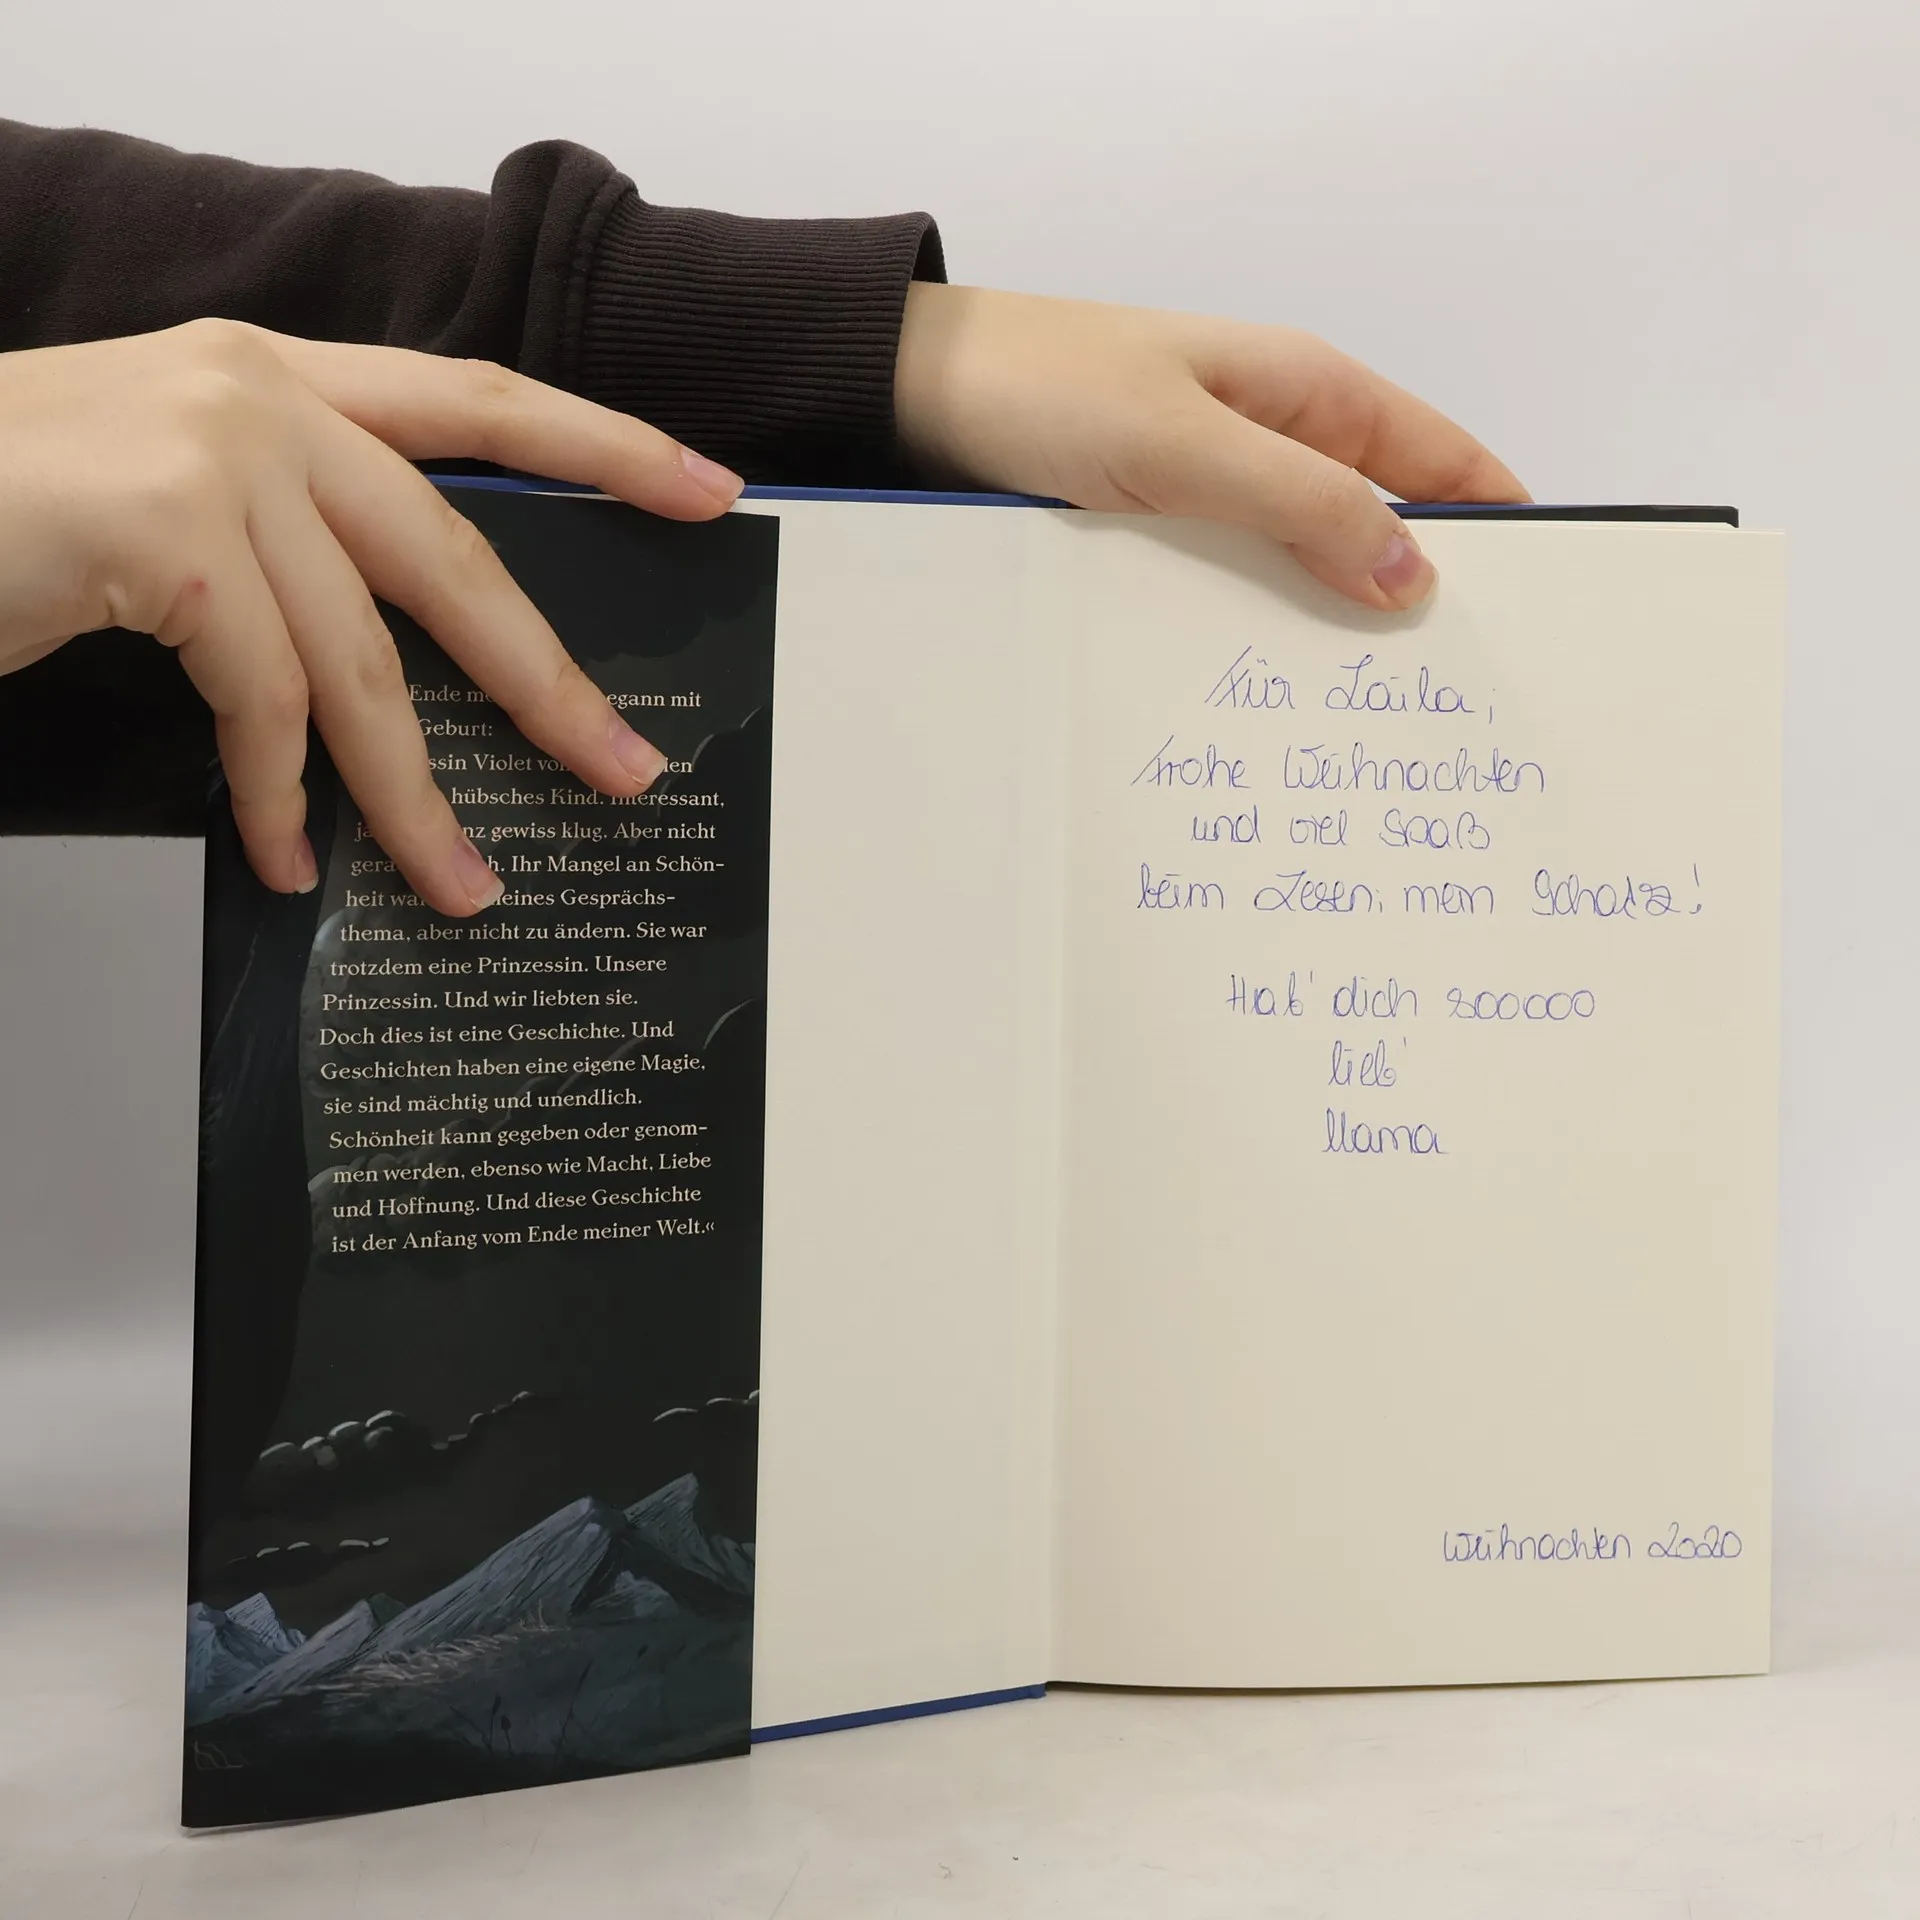 Ende me egann mit
Geburt:
ssin Violet von ien
hübsches Kind. Interessant,
ja nz gewiss klug. Aber nicht
gera h. Ihr Mangel an Schön-
heit war eines Gesprächs-
thema, aber nicht zu ändern. Sie war
trotzdem eine Prinzessin. Unsere
Prinzessin. Und wir liebten sie.
Doch dies ist eine Geschichte. Und
Geschichten haben eine eigene Magie,
sie sind mächtig und unendlich.
Schönheit kann gegeben oder genom-
men werden, ebenso wie Macht, Liebe
und Hoffnung. Und diese Geschichte
ist der Anfang vom Ende meiner Welt.«
Für Laila,
frohe Weihnachten
und viel Spaß
beim Lesen, mein Schatz!
Hab' dich sooooo
lieb'
Mama
Weihnachten 2020